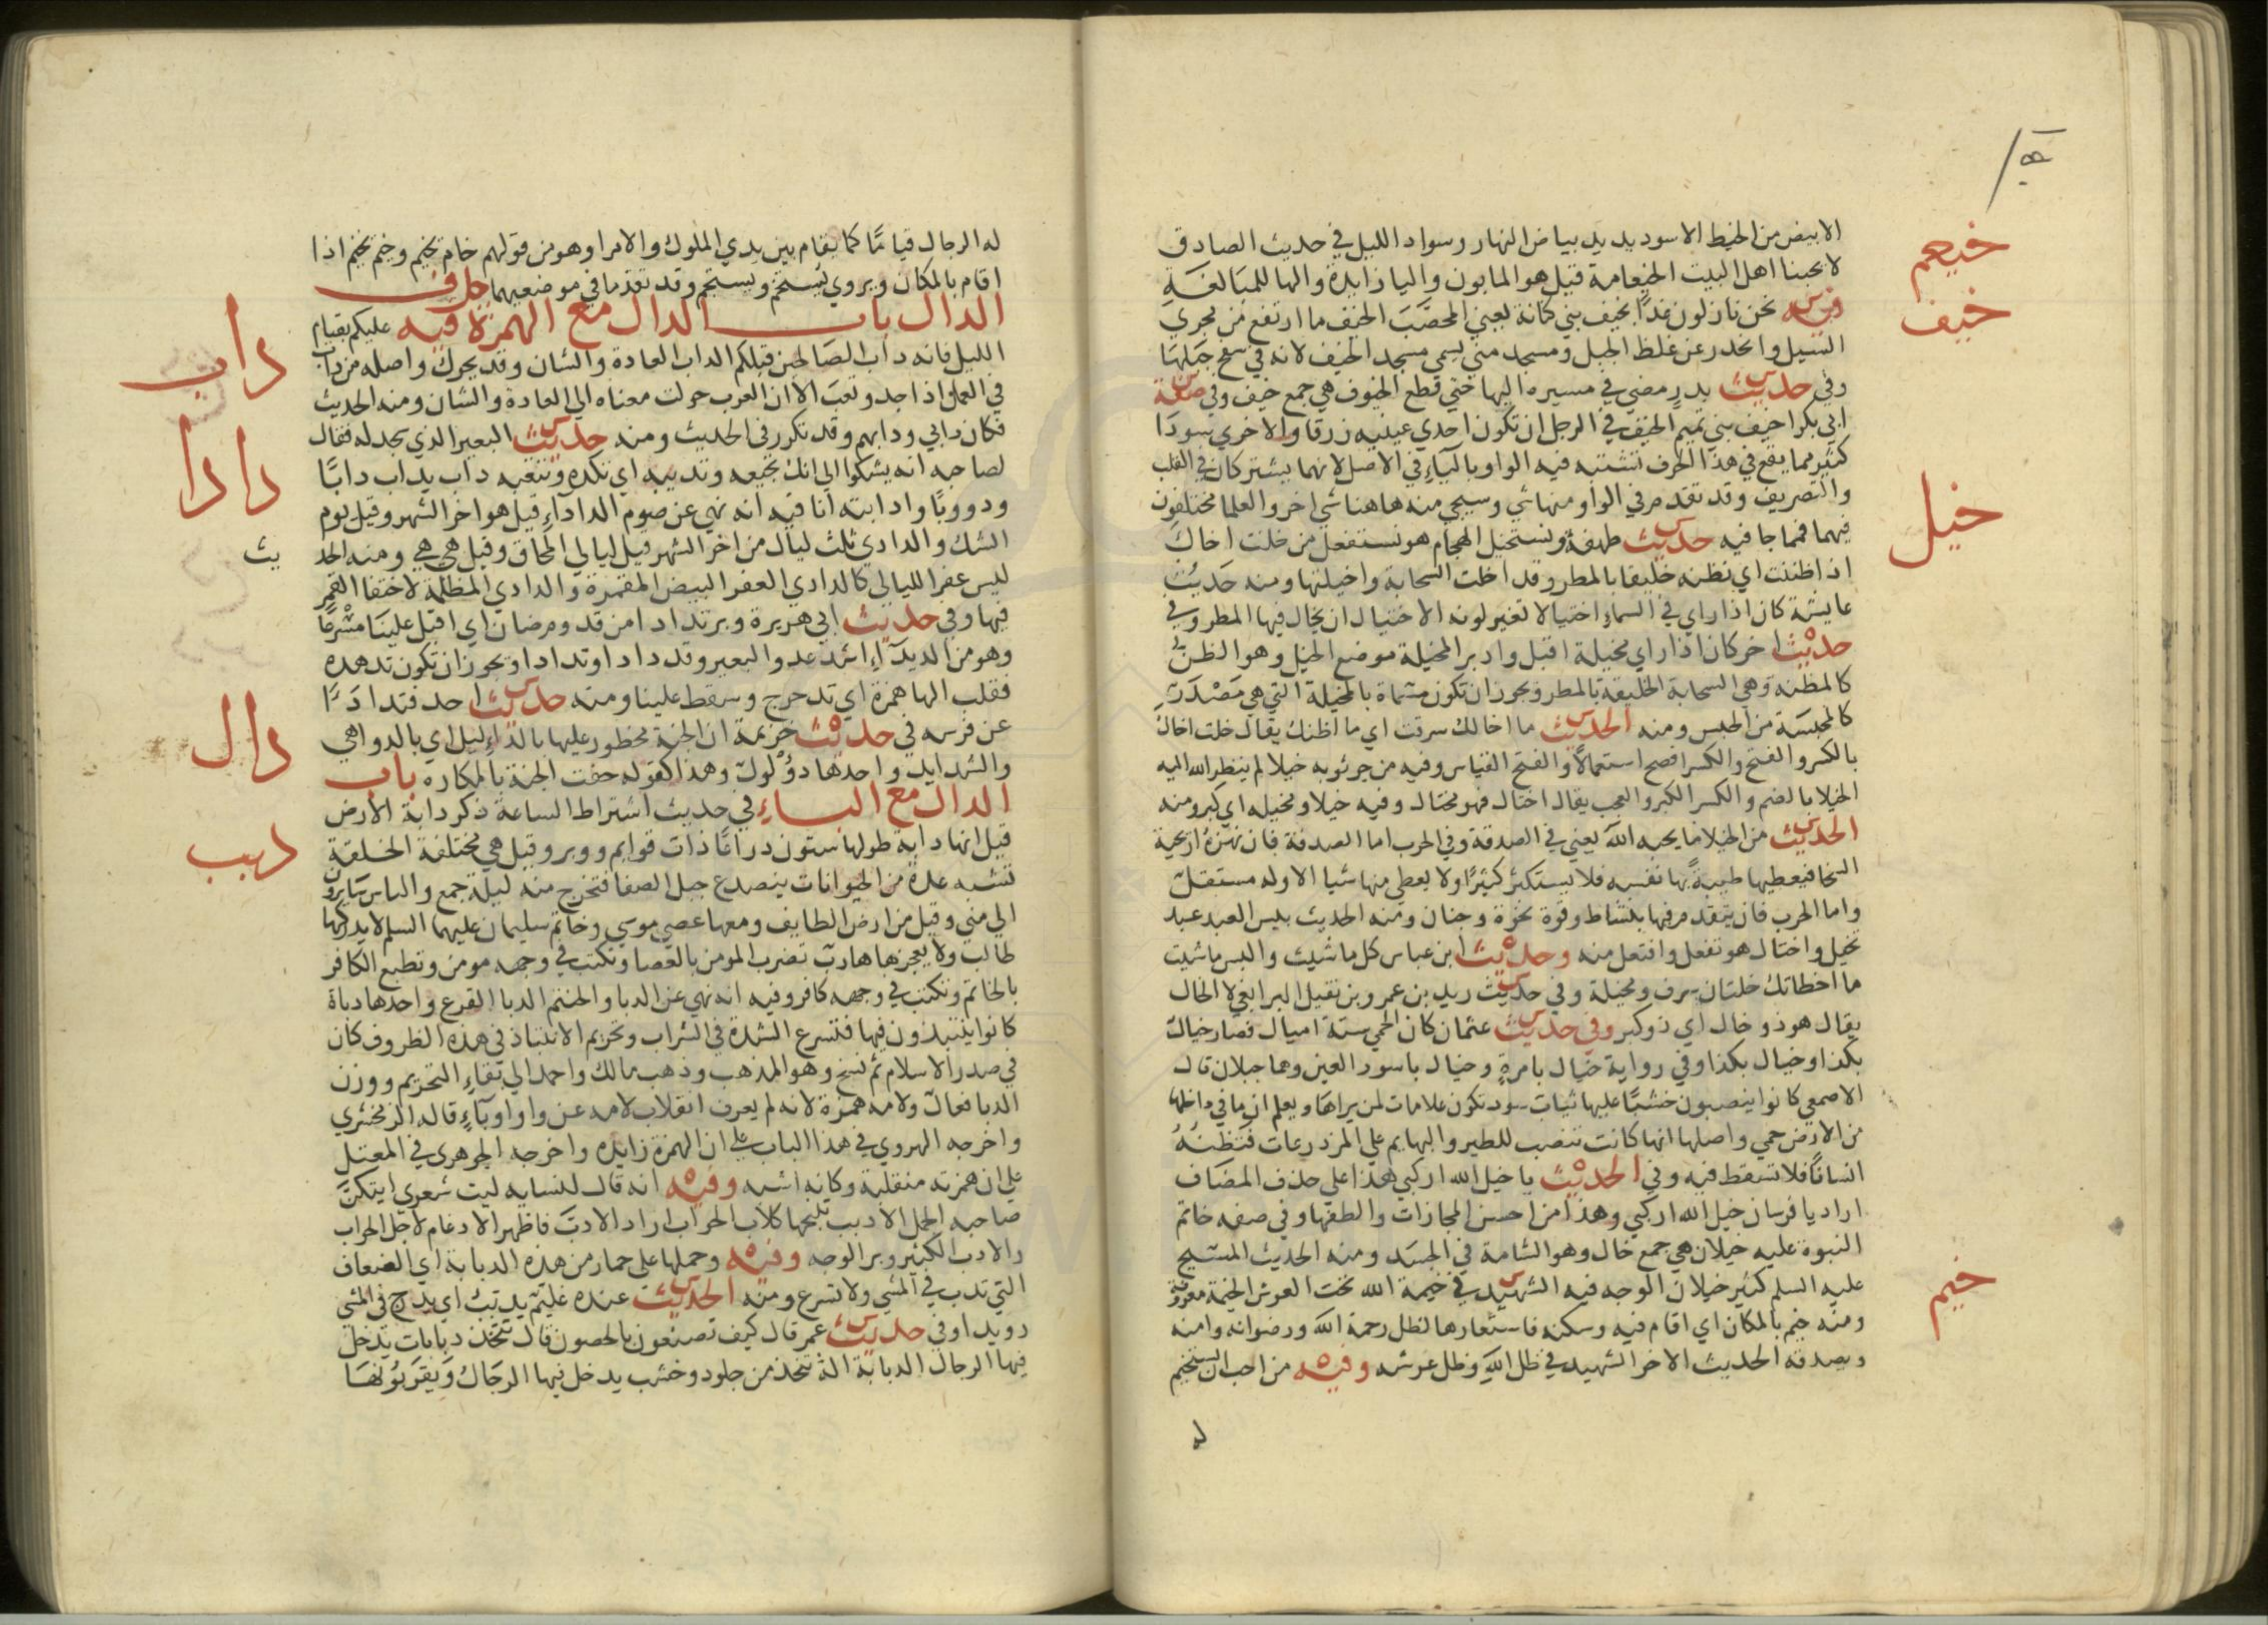 خيعم
خيف
خيل
خيم
الابيض من الخيط الاسود يريد بياض النهار وسواد الليل في حديث الصادق
لا يحبنا اهل البيت الخيعامة قيل هو المابون واليا زايدة والها للمبالغة
وفيه نحن نازلون غدًا بخيف بني كنانة يعني المحصّب الخيف ما ارتفع من مجري
السيل وانحدر عن غلظ الجبل ومسجد مني يسمي مسجد الخيف لانه في سفح جبلها
وفي حديث بدر مضي في مسيره اليها حتي قطع الخيوف هي جمع خيف وفي صفة
ابي بكر اخيف بني تميم الخيف في الرجل ان تكون احدي عينيه زرقا والاخري سودا
كثير مما يقع في هذا الحرف تشتبه فيه الواو بالياءِ في الاصل لانهما يشتركان في القلب
والتصريف وقد تقدم في الواو منها شي وسيجي منه هاهنا شي اخر والعلما مختلفون
فيهما فمما جا فيه حديث طهفة ونستخيل الجهام هو نستفعل من خلت اخال
اذا ظننت اي نظنه خليقا بالمطر وقد اخلت السحابة واخيلتها ومنه حديث
عايشة كان اذا راي في السماءِ اختيالا تغير لونه الاختيال ان يخال فيها المطر وفي
حديث اخر كان اذا راي مخيلة اقبل وادبر المخيلة موضع الخيل وهو الظن
كالمظنه وهي السحابة الخليقة بالمطر ويجوز ان تكون مسماة بالمخيلة التي هي مصدر
كالمحبسة من الحبس ومنه الحديث ما اخالك سرقت اي ما اظنك يقال خلت اخال
بالكسر والفتح والكسر افصح استعمالاً والفتح القياس وفيه من جر ثوبه خيلا لم ينظر الله اليه
الخيلا بالضم والكسر الكبر والعجب يقال اختال فهو مختال وفيه خيلا ومخيله اي كبر ومنه
الحديث من الخيلا ما يحبه الله يعني في الصدقة وفي الحرب اما الصدقة فان تهزه اريحية
السخا فيعطيها طيبةً بها نفسه فلا يستكثر كثيرًا ولا يعطي منها شيا الا وله مستقل
واما الحرب فان يتقدم فيها بنشاط وقوة نخوة وجنان ومنه الحديث بيس العبد عبد
تخيل واختال هو تفعل وافتعل منه وحديث ابن عباس كل ما شيت والبس ما شيت
ما اخطاتك خلتان سرف ومخيلة وفي حديث زيد بن عمرو بن نفيل البر ابغي لا الخال
يقال هو ذو خال اي ذو كبر وفي حديث عثمان كان الحمي ستة اميال فصار خيال
بكذا وخيال بكذا وفي رواية خيال بامرةٍ وخيال باسود العين وهما جبلان قال
الاصمعي كانوا ينصبون خشبًا عليها ثياب سود تكون علامات لمن يراها ويعلم ان ما في داخلها
من الارض حمي واصلها انها كانت تنصب للطير والبهايم علي المزدرعات فتظنه
انسانًا فلا تسقط فيه وفي الحديث يا خيل الله اركبي هذا علي حذف المضاف
اراد يا فرسان خيل الله اركبي وهذا من احسن المجازات والطفها وفي صفه خاتم
النبوة عليه خيلان هي جمع خال وهو الشامة في الجسد ومنه الحديث المسيح
عليه السلم كثير خيلان الوجه فيه الشهيد في خيمة الله تحت العرش الخيمة معروفة
ومنه خيم بالمكان اي اقام فيه وسكنه فاستعارها لظل رحمة الله ورضوانه وامنه
ويصدقه الحديث الاخر الشهيد في ظل الله وظل عرشه وفيه من احب ان يستخيم
له
داب
دادا
دال
دبب
له الرجال قيامًا كما يقام بين يدي الملوك والامرا وهو من قولهم خام يخيم وخيم يخيم اذا
اقام بالمكان ويروي يستخم ويستجم وقد تقدما في موضعيهما حرف
الدال باب الدال مع الهمزة فيه عليكم بقيام
الليل فانه داب الصالحين قبلكم الداب العادة والشان وقد يحرك واصله من داب
في العمل اذا جد وتعب الا ان العرب حولت معناه الي العادة والشان ومنه الحديث
فكان دابي ودابهم وقد تكرر في الحديث ومنه حديث البعير الذي سجد له فقال
لصاحبه انه يشكوا الي انك تجيعه وتدئبه اي تكده وتتعبه داب يداب دابًا
ودووبًا وادابته انا فيه انه نهي عن صوم الداداءِ قيل هو اخر الشهر وقيل يوم
الشك والدادي ثلث ليال من اخر الشهر قبل ليالي المحاق وقيل هي هي ومنه الحد يث
ليس عفر الليالي كالدادي العفر البيض المقمرة والدادي المظلمة لاختفا القمر
فيها وفي حديث ابي هريرة وبر تدادا من قدوم ضان اي اقبل علينا مسرعًا
وهو من الديداءِ اشد عدو البعير وقد دادا وتدادا ويجوز ان تكون تدهده
فقلب الها همزة اي تدحرج وسقط علينا ومنه حديث احد فتدادا
عن فرسه في حديث خزيمة ان الجنة محظور عليها بالداليل اي بالدواهي
والشدايد واحدها دؤلول وهذا كقوله حفت الجنة بالمكاره باب
الدال مع الباءِ في حديث اشتراط الساعة ذكر دابة الارض
قيل انها دابة طولها ستون ذراعًا ذات قوايم ووبر وقيل هي مختلفة الخلقة
تشبه عدة من الحيوانات ينصدع جبل الصفا فتخرج منه ليلة جمع والناس سايرون
الي مني وقيل من ارض الطايف ومعها عصي موسي وخاتم سليمان عليهما السلم لا يدركها
طالب ولا يعجزها هارب تضرب المومن بالعصا وتكتب في وجهه مومن وتطبع الكافر
بالخاتم وتكتب في وجهه كافر وفيه انه نهي عن الدبا والحنتم الدبا القرع واحدها دباة
كانوا ينتبذون فيها فتسرع الشدة في الشراب وتحريم الانتباذ في هذه الظروف كان
في صدر الاسلام ثم نسخ وهو المذهب وذهب مالك واحمد الي بقاءِ التحريم ووزن
الدبا فعال ولامه همزة لانه لم يعرف انقلاب لامه عن واو او ياءٍ قاله الزمخشري
واخرجه الهروي في هذا الباب علي ان الهمزة زايده واخرجه الجوهري في المعتل
علي ان همزته منقلبة وكانه اشبه وفيه انه قال لنسايه ليت شعري ايتكن
صاحبه الجمل الادبب تنبحها كلاب الحواب اراد الادب فاظهر الادغام لاجل الحواب
والادب الكثير وبر الوجه وفيه وحملها علي حمار من هذه الدبابة اي الضعاف
التي تدب في المشي ولا تسرع ومنه الحديث عنده غليم يدبب اي يدرج في المشي
رويدا وفي حديث عمر قال كيف تصنعون بالحصون قال نتخذ دبابات يدخل
فيها الرجال الدبابة الة تتخذ من جلود وخشب يدخل فيها الرجال ويقربونها